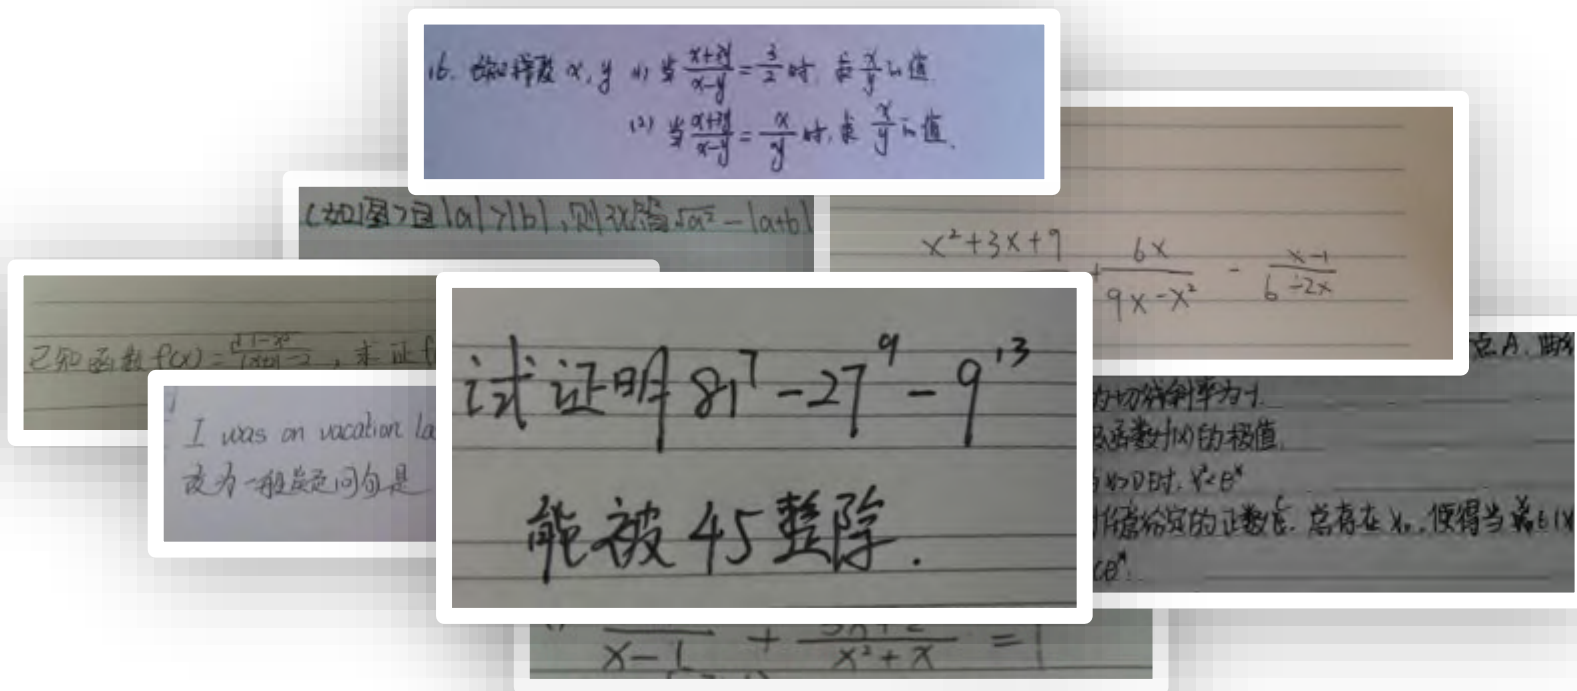 16. 已知实数 x, y (1) 当 \frac{x+3y}{x-y} = \frac{3}{2} 时, 求 \frac{x}{y} 的值.
(2) 当 \frac{x+3y}{x-y} = \frac{x}{y} 时, 求 \frac{x}{y} 的值.
(如图)且|a|>|b|,则 √a² - |a+b|
x²+3x+9
+ \frac{6x}{9x-x²} - \frac{x-1}{6-2x}
已知函数 f(x)= , 求证 f
I was on vacation la
改为一般疑问句是
试证明 81⁷ - 27⁹ - 9¹³
能被 45 整除.
点A, 曲线
切线斜率为-1.
函数f(x)的极值.
x>0时, x²<eˣ
给定的正数c, 总存在 x₀, 使得当
<eˣ.
x-1 + \frac{}{x²+x} =